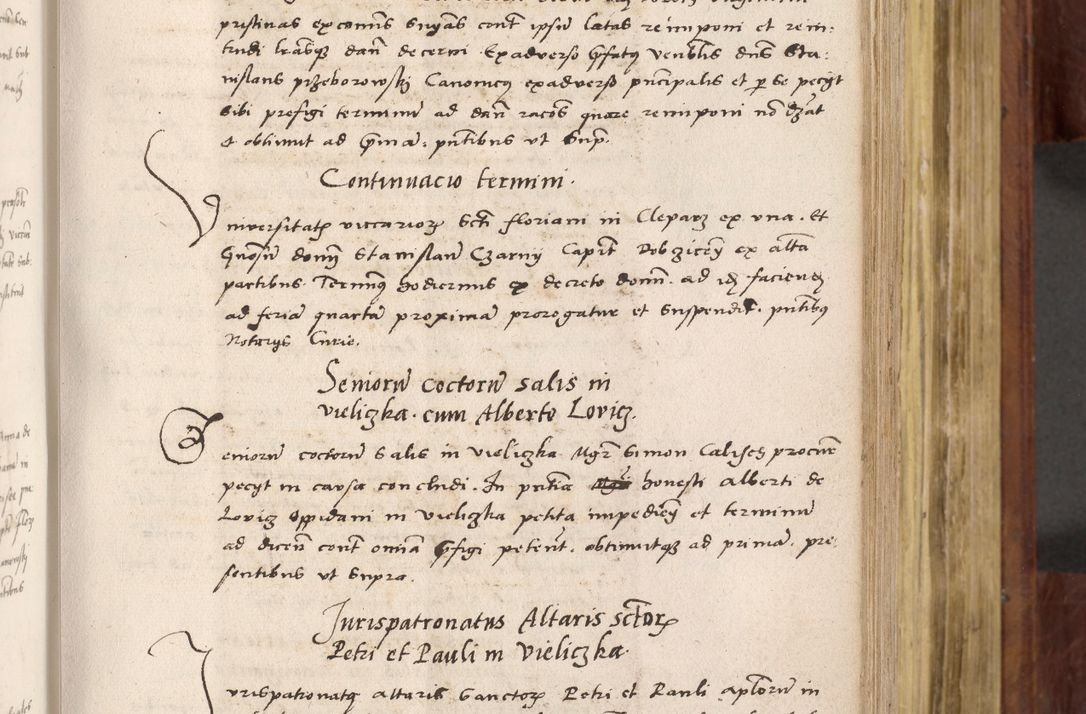 pristinas excomīs suyās conť ipsū latas reimponi et rein:
trudi lr̄asqꝫ dań decerni. Ex adverso ꝑfatꝰ venblis dns̄ Sta:
nislaus przeborowskỹ Canonicus ex adverso pn̄cipalis et ꝑ se pecyt
sibi prefigi terminū ad dań racōs quare reimponi nō dz̄at
et obtinuit ad p̄imā. pn̄tibus vt supͣ.
Continuacio termini.
Vniversitatꝭ viccarioꝝ Scti floriani in Cleparꝫ ex vna. Et
Gn̄osū domī Stanislaū Czarny Capiť Dobczicen̄ ex altā
partibus. Terminꝰ hodiernus ex decreto domī. ad idꝫ faciendꝫ
ad feriā quartā proximā prorogatur et suspendit. pn̄tibꝰ
Notarys Curie.
Seniorū coctorū salis in
vieliczka. cum Alberto Lovicꝫ.
Seniorū coctorū salis in vieliczka Mgr̄ Simon Calisꝫ procurͭ
pecyt in causa concludi. In pn̄tia honesti Alberti de
Lovicꝫ oppidani in vieliczka petita impedien̄ et terminū
ad dicen̄ conť omīa p̄figi petenť. obtinuitqꝫ ad primā. pre:
sentibus vt supra.
Jurispatronatus Altaris sctoꝝ
Petri et Pauli in vieliczka.
Jurispatronatꝰ altaris Sanctoꝝ Petri et Pauli apl̄orū in